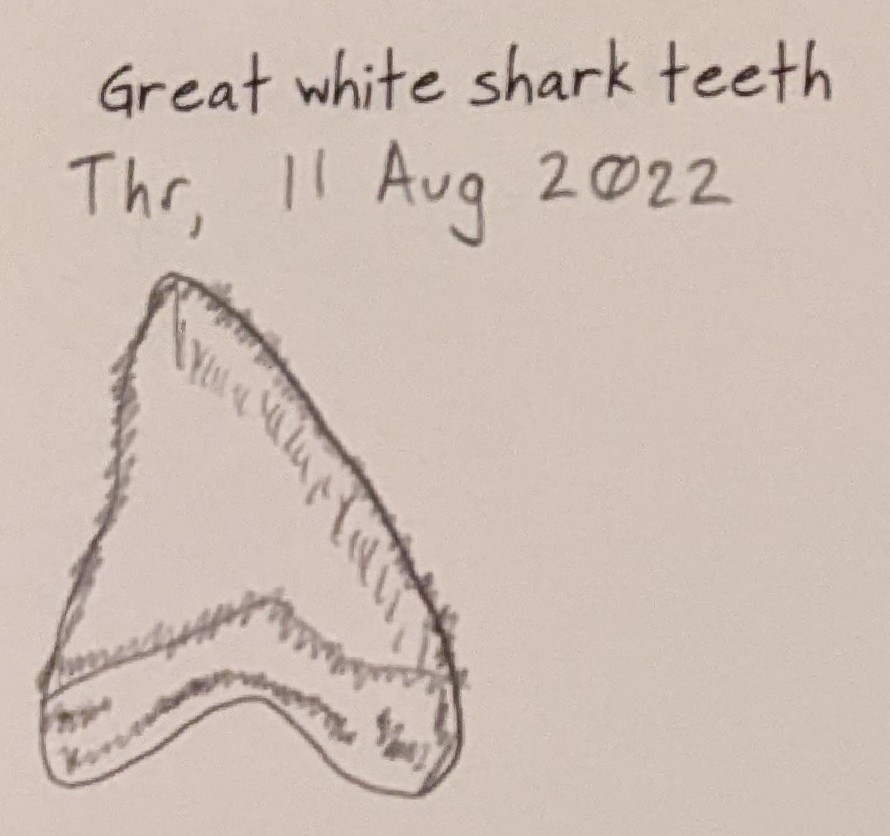 Great white shark teeth
Thr, 11 Aug 2022